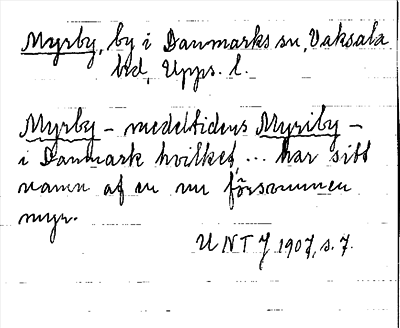 Myrby, by i Danmarks sn, Vaksala
hd, Upps. l.
Myrby – medeltidens Myriby –
i Danmark hvilket, ... har sitt
namn af en nu försvunnen
myr.
UNT 1907, s. 7.